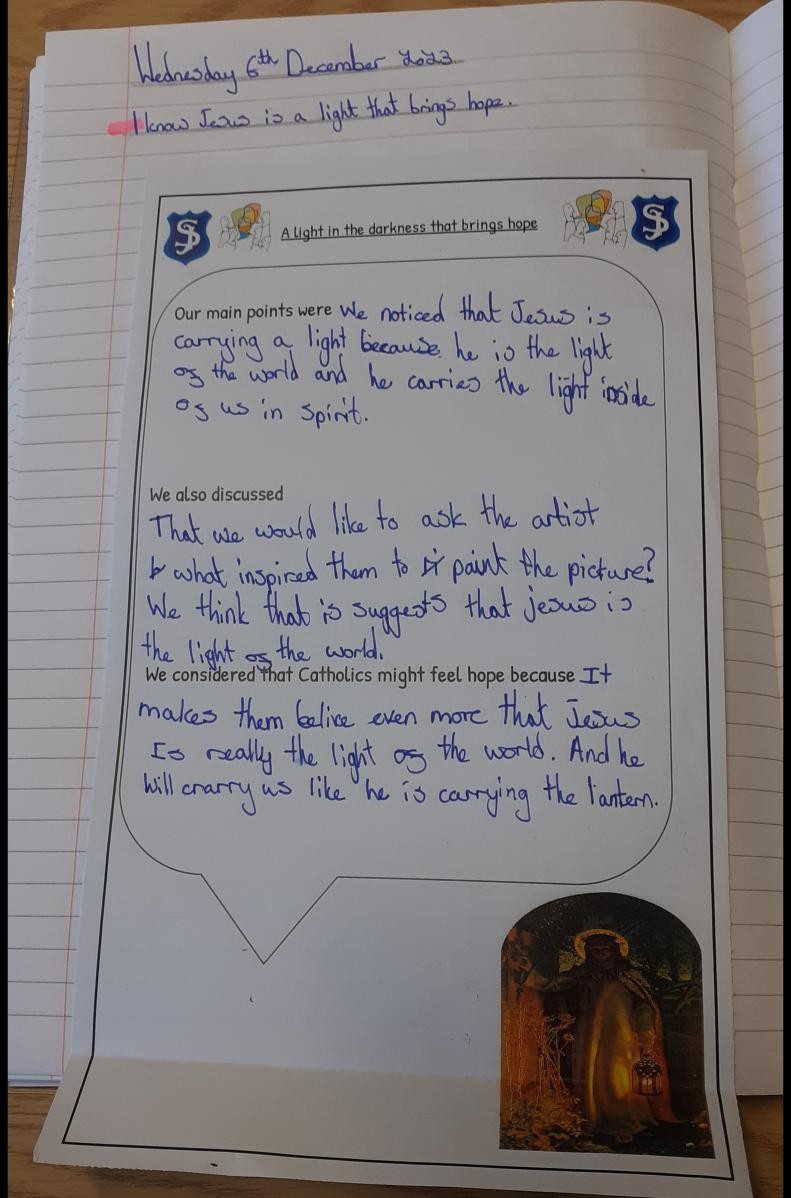 Wednesday 6th December 2023.
I know Jesus is a light that brings hope.
A light in the darkness that brings hope
Our main points were We noticed that Jesus is
carrying a light because he is the light
of the world and he carries the light inside
of us in spirit.
We also discussed
That we would like to ask the artist
what inspired them to paint the picture?
We think that is suggests that jesus is
the light of the world.
We considered that Catholics might feel hope because It
makes them belive even more that Jesus
Is really the light of the world. And he
will crarry us like he is carrying the lantern.